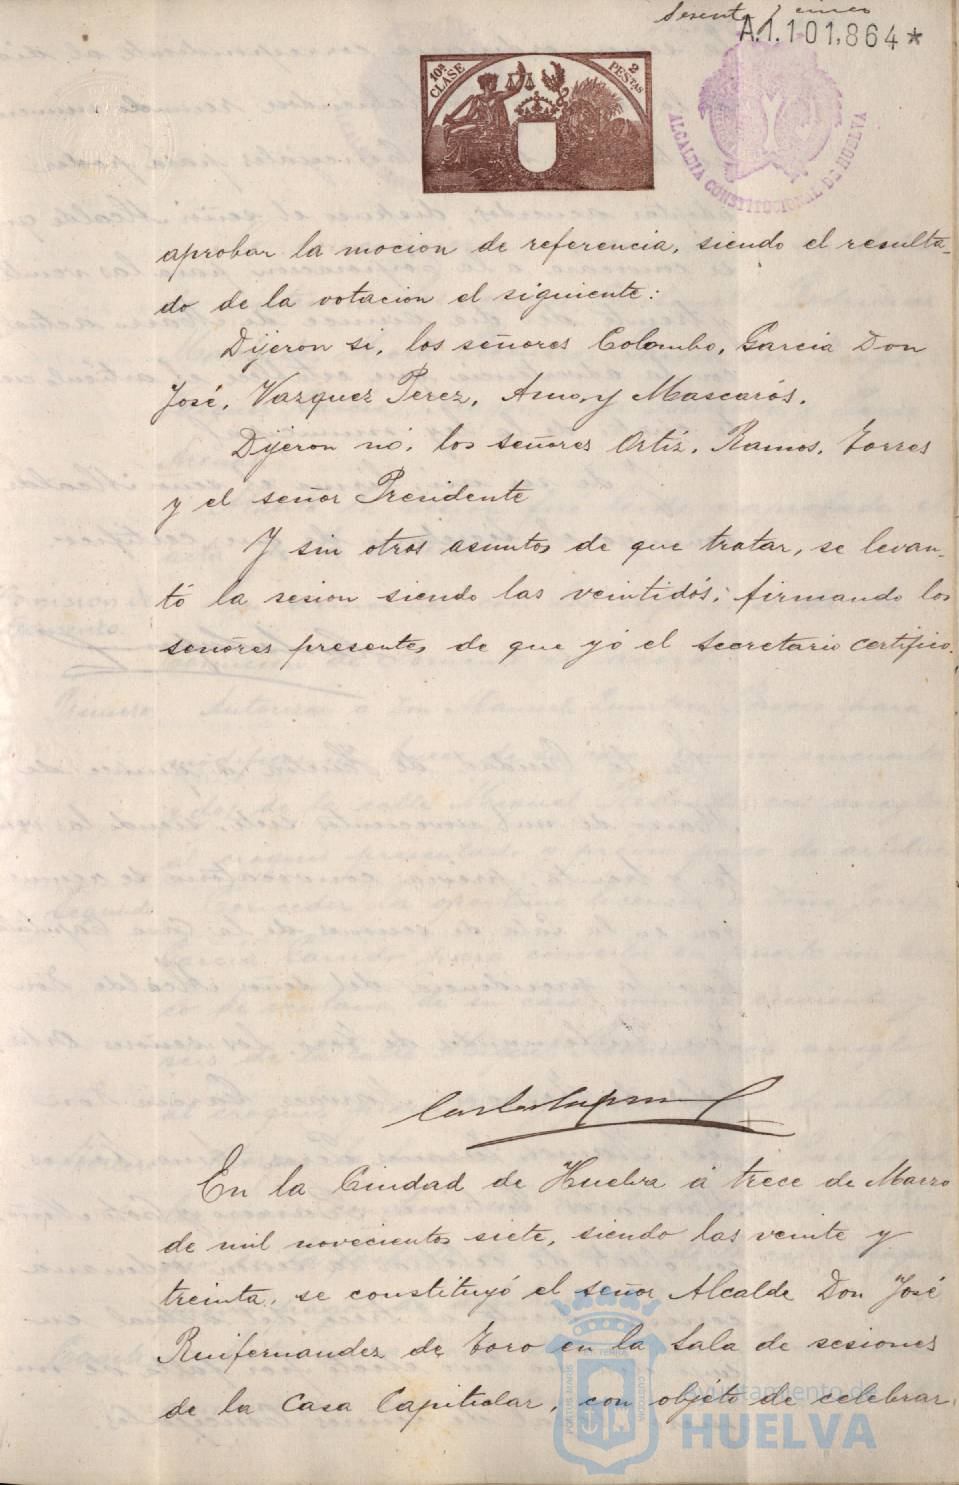 Sesenta y cinco
A.1.101.864*
10ª CLASE
2 PESTAS
ALCALDIA CONSTITUCIONAL DE HUELVA
aprobar la mocion de referencia, siendo el resulta-
do de la votacion el siguiente:
Dijeron si, los señores Colombo, Garcia Don
José, Vazquez Perez, Amo, y Mascarós.
Dijeron nó, los señores Ortiz, Ramos, Torres
y el señor Presidente
Y sin otros asuntos de que tratar, se levan-
tó la sesion siendo las veintidós; firmando los
señores presentes de que yó el Secretario certifico.
En la Ciudad de Huelva á trece de Marzo
de mil novecientos siete, siendo las veinte y
treinta, se constituyó el señor Alcalde Don José
Ruifernandez de Toro en la Sala de sesiones
de la Casa Capitular, con objeto de celebrar
Ayuntamiento de
HUELVA